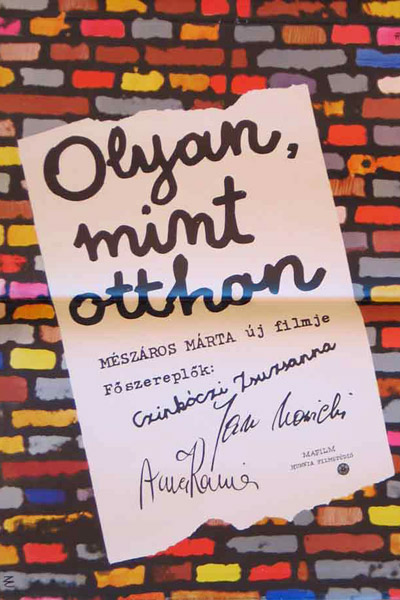 Olyan,
mint
otthon
MÉSZÁROS MÁRTA új filmje
Főszereplők:
Czinkóczi Zsuzsanna
Jan Nowicki
Anna Karina
MAFILM
HUNNIA FILMSTÚDIÓ